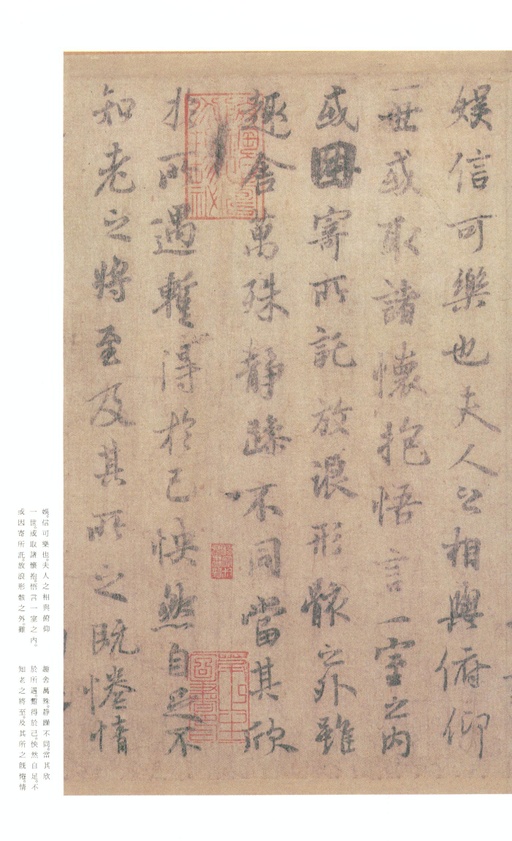 娛信可樂也夫人之相與俯仰
一世或取諸懷抱悟言一室之內
或因寄所託放浪形骸之外雖
趣舍萬殊靜躁不同當其欣
於所遇暫得於己怏然自足不
知老之將至及其所之既惓情
娛信可樂也夫人之相與俯仰
一世或取諸懷抱悟言一室之內
或因寄所託放浪形骸之外雖
趣舍萬殊靜躁不同當其欣
於所遇暫得於己怏然自足不
知老之將至及其所之既惓情